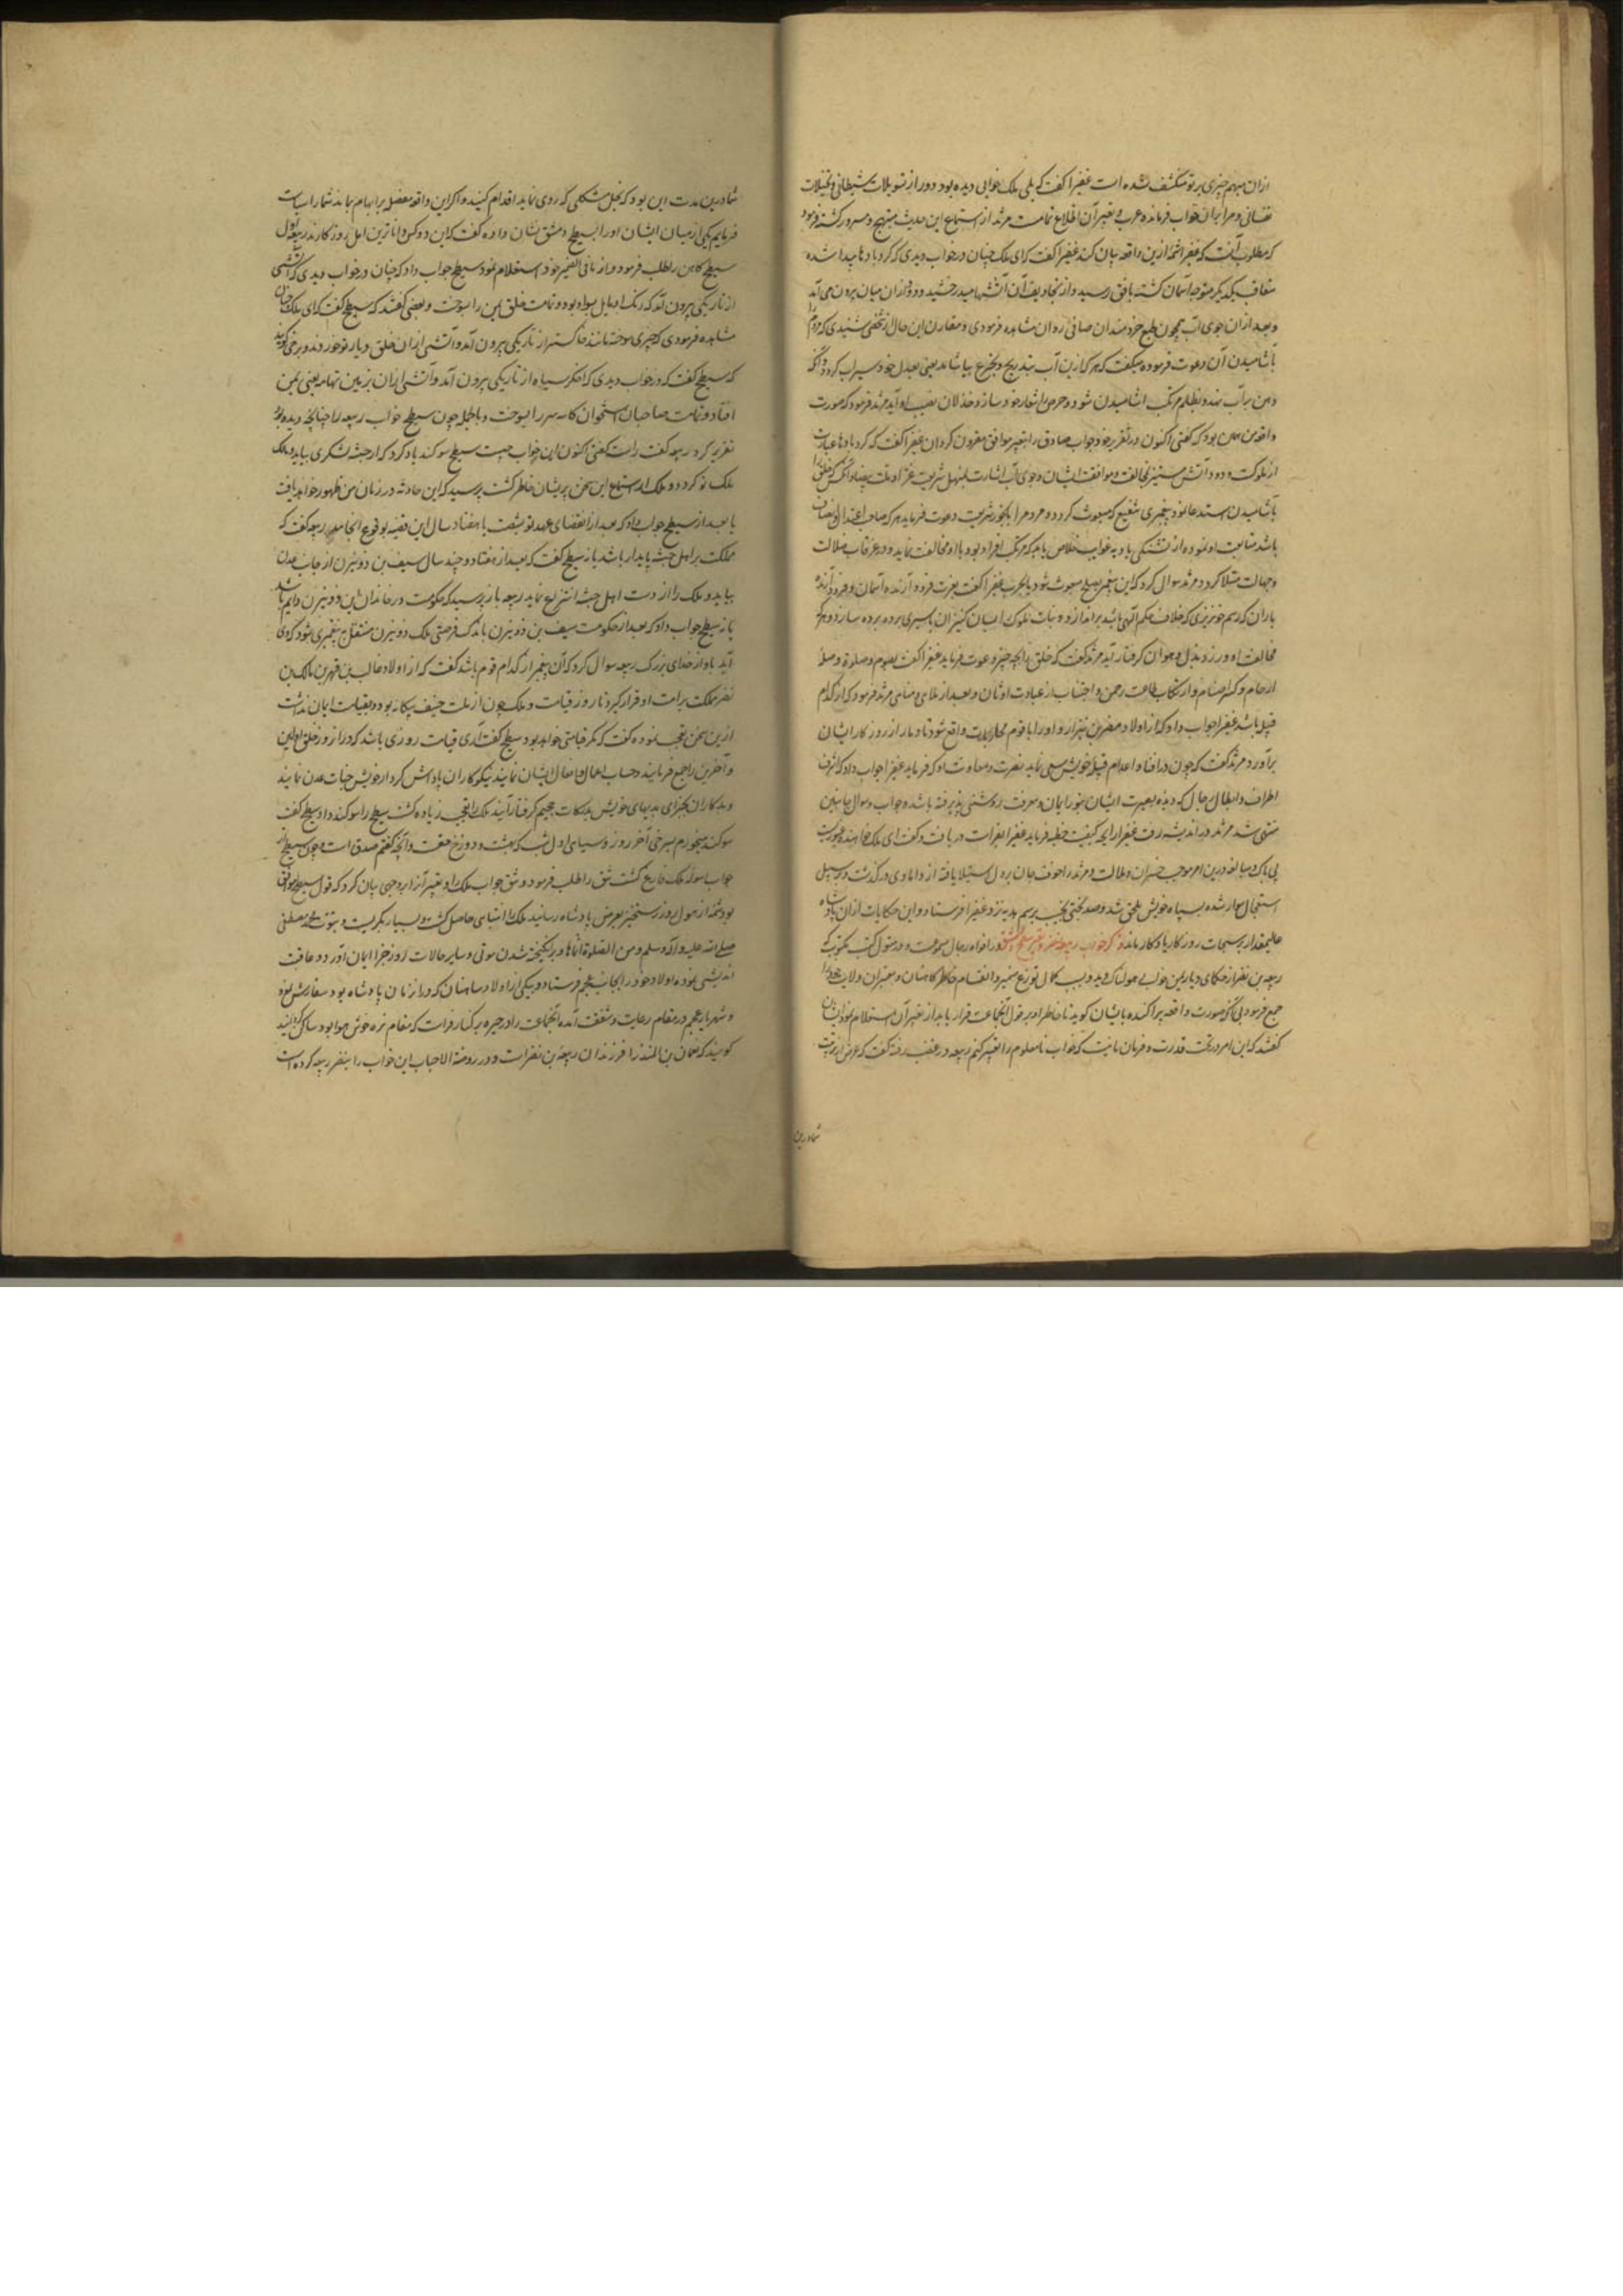 ازان مبهم چیزی بر تو منکشف نشده است عفیرا گفت که بلی ملک خوابی دیده بود دور از تسویلات شیطانی و تخیلات
نفسانی و مرا بران خواب فرمانده عرب و تعبیر آن اطلاع تمامست مرثد از استماع این حدیث مبتهج و مسرور گشته فرمود
که مطلوب آنست که عفیرا شمهٔ ازین واقعه بیان کند عفیرا گفت که ای ملک چنان در خواب دیدی که گردبادها پیدا شده
متعاقب یکدیگر متوجه آسمان گشته بافق رسید و از آن آتشها میدرخشید و دود ازان میان بیرون می آمد
و بعد ازان جوی آب همچون طبع خردمندان صافی روان مشاهده فرمودی و مقارن این حال از شخصی شنیدی که مردم را
بآشامیدن آن دعوت فرموده میگفت که هر که ازین آب بتدریج و بجرع بیاشامد یعنی بعدل خود سیراب گردد و آنکه
دهن بر آب نهد و بظلم مرتکب آشامیدن شود و حرص را شعار خود سازد خذلان نصیب او آید مرثد فرمود که صورت
واقعه من همین بود که گفتی اکنون در تقریر خود جواب صادق را بتعبیر موافق مقرون گردان عفیرا گفت که گردبادها عبارت
از ملوکست و دود و آتش ستیز مخالفت و موافقت ایشان و جوی آب اشارت بمنهل شریعت غرا و ملت بیضا و آنکس که خلق را
بآشامیدن استدعا نمود پیغمبری شفیع که مبعوث گردد و مردم را بآبخور شریعت دعوت فرماید هر که صاحب اعتدال و انصاف
باشد متابعت او نموده از تشنگی بادیه غوایت خلاص یابد و هر که مرتکب افراد بود با او مخالفت نماید و در غرقاب ضلالت
و جهالت مبتلا گردد مرثد سوال کرد که این پیغمبر بصلح مبعوث شود یا بحرب عفیرا گفت بعزت فرود آرنده آسمان و فرود آرندهٔ
باران که رسم خونریزی که خلاف حکم الهی باشد براندازد و بنات ملوک را بسان کنیزان باسیری برده برده سازد و هر که
مخالفت او ورزد بذل و هوان گرفتار آید مرثد گفت که خلق را بچه چیز دعوت فرماید عفیرا گفت بصوم و صلوة و صلهٔ
ارحام و کسر اصنام و ارتکاب طاعت رحمن و اجتناب از عبادت اوثان و بعد از ملاهی و مناهی مرثد فرمود که از کدام
قبیله باشد عفیرا جواب داد که از اولاد مضر بن نزار و او را با قوم محاربات واقع شود تا دمار از روزگار ایشان
برآورد مرثد گفت که چون در افنا و اعدام قبیله خویش سعی نماید نصرت و معاونت او که فرماید عفیرا جواب داد که اشراف
اطراف و ابطال رجال که دیدهٔ بصیرت ایشان بنور ایمان و معرفت روشنی پذیرفته باشد و جواب و سوال جانبین
منتهی شد مرثد در اندیشه رفت عفیرا را بچه کیفیت خطبه فرماید عفیرا بفراست دریافت و گفت ای ملک
بی باک و مبالغه درین امر موجب خسران و ملالت و مرثد را خوف جان بر دل استیلا یافته از داماوی درگذشت و بر سبیل
استعجال سوار شده بسپاه خویش ملحق شد و صد بختی نجیب برسم هدیه نزد عفیرا فرستاد و این حکایات ازان پادشاه
عالیمقدار بر صفحات روزگار یادگار ماند ذکر خواب ربیعه بن نصر و تعبیر سطیح و شق در افواه رجال مسموعست و در متون کتب مکتوب که
ربیعه بن نصر از حکام دیار یمن خوابی هولناک دید و بسبب کمال توزع ضمیر و انقسام خاطر کاهنان و معبران ولایت خود را
جمع فرمود بی آنکه صورت واقعه پراکنده بایشان گوید تا خاطر او بر قول آنجماعت قرار یابد از تعبیر آن استعلام نمود ایشان
گفتند که این امر در تحت قدرت و فرمان ما نیست که خواب نامعلوم را تعبیر کنیم ربیعه در غضب رفته گفت که غرض از تربیت
شما درین
شما درین مدت این بود که بحل مشکلی که روی نماید اقدام کنید و اگر این واقعه معضله بر ابهام بماند شما را سیاست
فرمایم یکی از میان ایشان او را بسطیح و شق نشان داده گفت که این دو کس داناترین اهل روزگارند ربیعه اول
سطیح کاهن را طلب فرمود و از ما فی الضمیر خود استعلام نمود سطیح جواب داد که چنان در خواب دیدی که آتشی
از تاریکی بیرون آمد که رنک او مایل بسواد بود و تمامت خلق یمن را بسوخت و بعضی گفتند که سطیح گفت که ای ملک چنان
مشاهده فرمودی که چیزی سوخته مانند خاکستر از تاریکی بیرون آمد و آتشی ازان خلق دیار تو خورد و برخی گویند
که سطیح گفت که در خواب دیدی که اخکر سیاه از تاریکی بیرون آمد و آتشی ازان بزمین تهامه یعنی یمن
افتاد و تمامت صاحبان استخوان کاسه سر را بسوخت و بالجمله چون سطیح خواب ربیعه را چنانچه دیده بود
تقریر کرد ربیعه گفت راست گفتی اکنون این خواب چیست سطیح سوگند یاد کرد که از حبشه لشکری بیاید و مالک
ملک تو گردد و ملک از استماع این سخن پریشان خاطر گشت پرسید که این حادثه در زمان من ظهور خواهد یافت
یا بعد از سطیح جواب داد که بعد از انقضای عهد تو بشصت یا هفتاد سال این قضیه بوقوع انجامد ربیعه گفت که
مملکت بر اهل حبشه پایدار باشد یا نه سطیح گفت که بعد از هفتاد و چند سال سیف بن ذویزن از جانب عدن
بیاید و ملک را از دست اهل حبشه انتزاع نماید ربیعه باز پرسید که حکومت در خاندان این ذویزن دایم باشد
یا نه سطیح جواب داد که بعد از حکومت سیف بن ذویزن باندک فرصتی ملک ذویزن منتقل به پیغمبری شود که وحی
آید باو از خدای بزرگ ربیعه سوال کرد که آن پیغمبر از کدام قوم باشد گفت که از اولاد غالب بن فهر بن مالک بن
نضر مملکت بر امت او قرار گیرد تا روز قیامت و ملک چون از ملت حنیف بیگانه بود و بقیامت ایمان نداشت
ازین سخن تعجب نموده گفت که مگر قیامتی خواهد بود سطیح گفت آری قیامت روزی باشد که دران روز خلق اولین
و آخرین را جمع فرمایند و حساب اعمال و افعال ایشان نمایند نیکوکاران پاداش کردار خویش جنات عدن نمایند
و بدکاران بجزای بدیهای خویش بدرکات جحیم گرفتار آیند ملک را تعجب زیاده گشت سطیح را سوگند داد سطیح گفت
سوگند میخورم بسرخی آخر روز و سیاهی اول شب که بهشت و دوزخ حقست و آنچه گفتم صدق است و چون سطیح از
جواب سوال ملک فارغ گشت شق را طلب فرمود و شق جواب ملک داد و تعبیر آنرا بر وجهی بیان کرد که قول سطیح موافق
بود شمهٔ از هول روز رستخیز بعرض پادشاه رسانید ملک را انتباهی حاصل گشت و بسیار بگریست و بنبوت محمد مصطفی
صلی الله علیه و آله و سلم و من الصلوة اتمها و برانگیخته شدن موتی و سایر حالات روز جزا ایمان آورد و عاقبت
اندیشی نموده اولاد خود را بجانب عجم فرستاد و بیکی از اولاد ساسان که دران زمان پادشاه بود سفارش نمود
و شهریار عجم در مقام رعایت و شفقت آمده آنجماعت را در حیره بر کنار فرات که مقام نزه خوش هوا بود ساکن گردانید
گویند که نعمان بن المنذر از فرزندان ربیعه بن نصر است و در روضة الاحباب این خواب را بنصر ربیعه کرده است